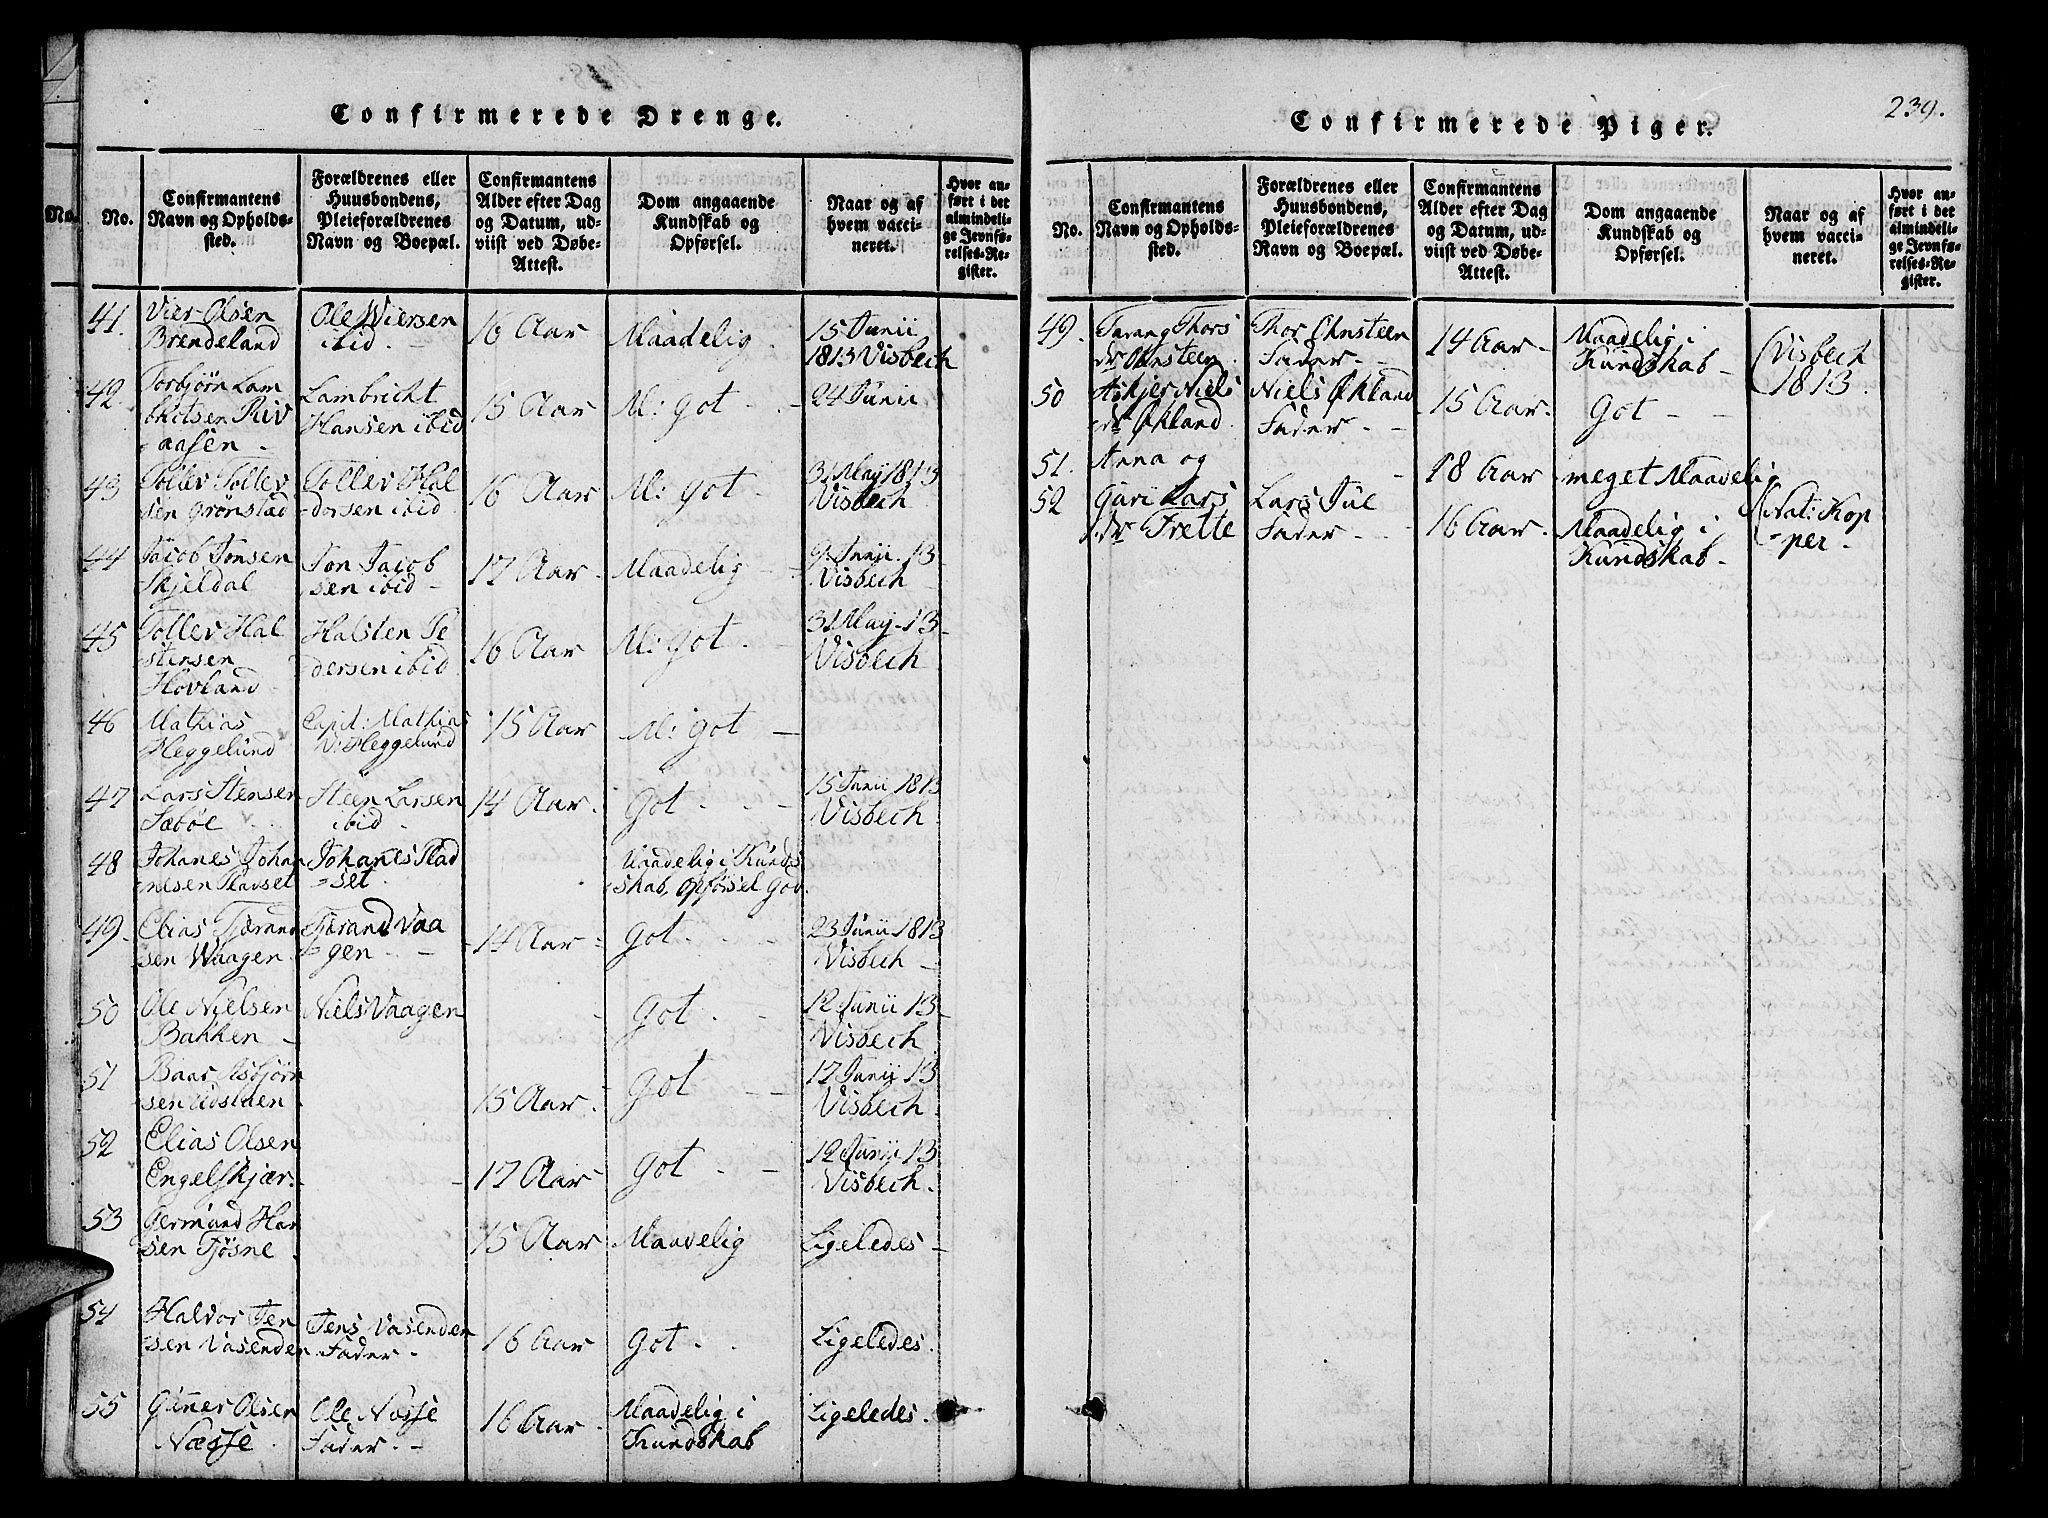 Confirmerede Drenge.
No.
No.
Confirmantens
Navn og Opholds-
sted.
Forældrenes eller
Huusbondens,
Pleieforældrenes
Navn og Boepæl.
Confirmantens
Alder efter Dag
og Datum, ud-
viist ved Døbe-
Attest.
Dom angaaende
Kundskab og
Opførsel.
Naar og af
hvem vacci-
neret.
Hvor an-
ført i det
almindeli-
ge Jevnfø-
relses-Re-
gister.
41.
Vier Olsen
Brendeland
Ole Wiersen
ibid. -
16 Aar
Maadelig
15 Junii
1813 Visbech
42
Torbjørn Lam
Riv
-aasen -
Lambricht
Hansen ibid
15 Aar
M: got - -
24 Junii
43
Tollev Tollev
sen Grønstad
Tollev Hal
-dorsen ibid
16 Aar
M: got -
31 May 1813
Visbech
44
Jacob Jonsen
Skjeldal
Jon Jacob
sen ibid -
17 Aar -
Maadelig -
9 Junii - 13
Visbech
45
Tollev Hal
-stensen
Hovland -
Halsten Pe
-dersen ibid
16 Aar
M: got -
31 May - 13
Visbech
46
Mathias
Heggelund
Capit: Mathias
V: Heggelund
15 Aar
M: got -
47
Lars Stensen
Sæbøe
Steen Larsen
ibid -
14 Aar.
Got - -
15 Junii 1813
Visbech
48
Johanes Johan
-nesen Fladset
Johanes Flad
-set.
Maadelig i Kunds
skab, opførsel god.
49.
Elias Tjerand
sen Waagen
Tjerand Vaa
-gen -
-14 Aar -
got - -
23 Junii 1813
Visbech -
50
Ole Nielsen
Bakken -
Niels Vaagen
Got - -
12 Junii 13
Visbech
51
Baar Asbjørn
sen
15 Aar -
Got - -
17 Junii 13
Visbech.
52
Elias Olsen
Engelskjær.
17 Aar
Got -
12 Junii 13
Visbech.
53
Germund Han
sen Tjøsne -
15 Aar
Maadelig
Ligeledes -
54
Halvor Jen
-sen Vasenden
Jens Vasenden
Fader -
16 Aar
Got - -
Ligeledes.
55
Gunner Olsen
Næsse
Ole Næsse
Fader - -
16 Aar
Maadelig i
Kundskab
Ligeledes.
Confirmerede Piger.
239.
No.
Confirmantens
Navn og Opholds-
sted.
Forældrenes eller
Huusbondens,
Pleieforældrenes
Navn og Boepæl.
Confirmantens
Alder efter Dag
og Datum, ud-
viist ved Døbe-
Attest.
Dom angaaende
Kundskab og
Opførsel.
Naar og af
hvem vacci-
neret.
Hvor an-
ført i det
almindeli-
ge Jevnfø-
relses-Re-
gister.
49.
Thors
dr Ohnsteen
Thor Ohnsteen
Fader - -
14 Aar -
Maadelig i
Kundskab -
Visbech
1813.
50
Askjer Niels
-dr Økland.
Niels Økland
Fader - -
15 Aar.
Got - -
51.
Anna og
18 Aar
meget Maadelig
52
Guri Lars
dr Frette
Lars Jul
Fader - -
16 Aar.
Maadelig i
Kundskab -
Nat: Kop
-per -